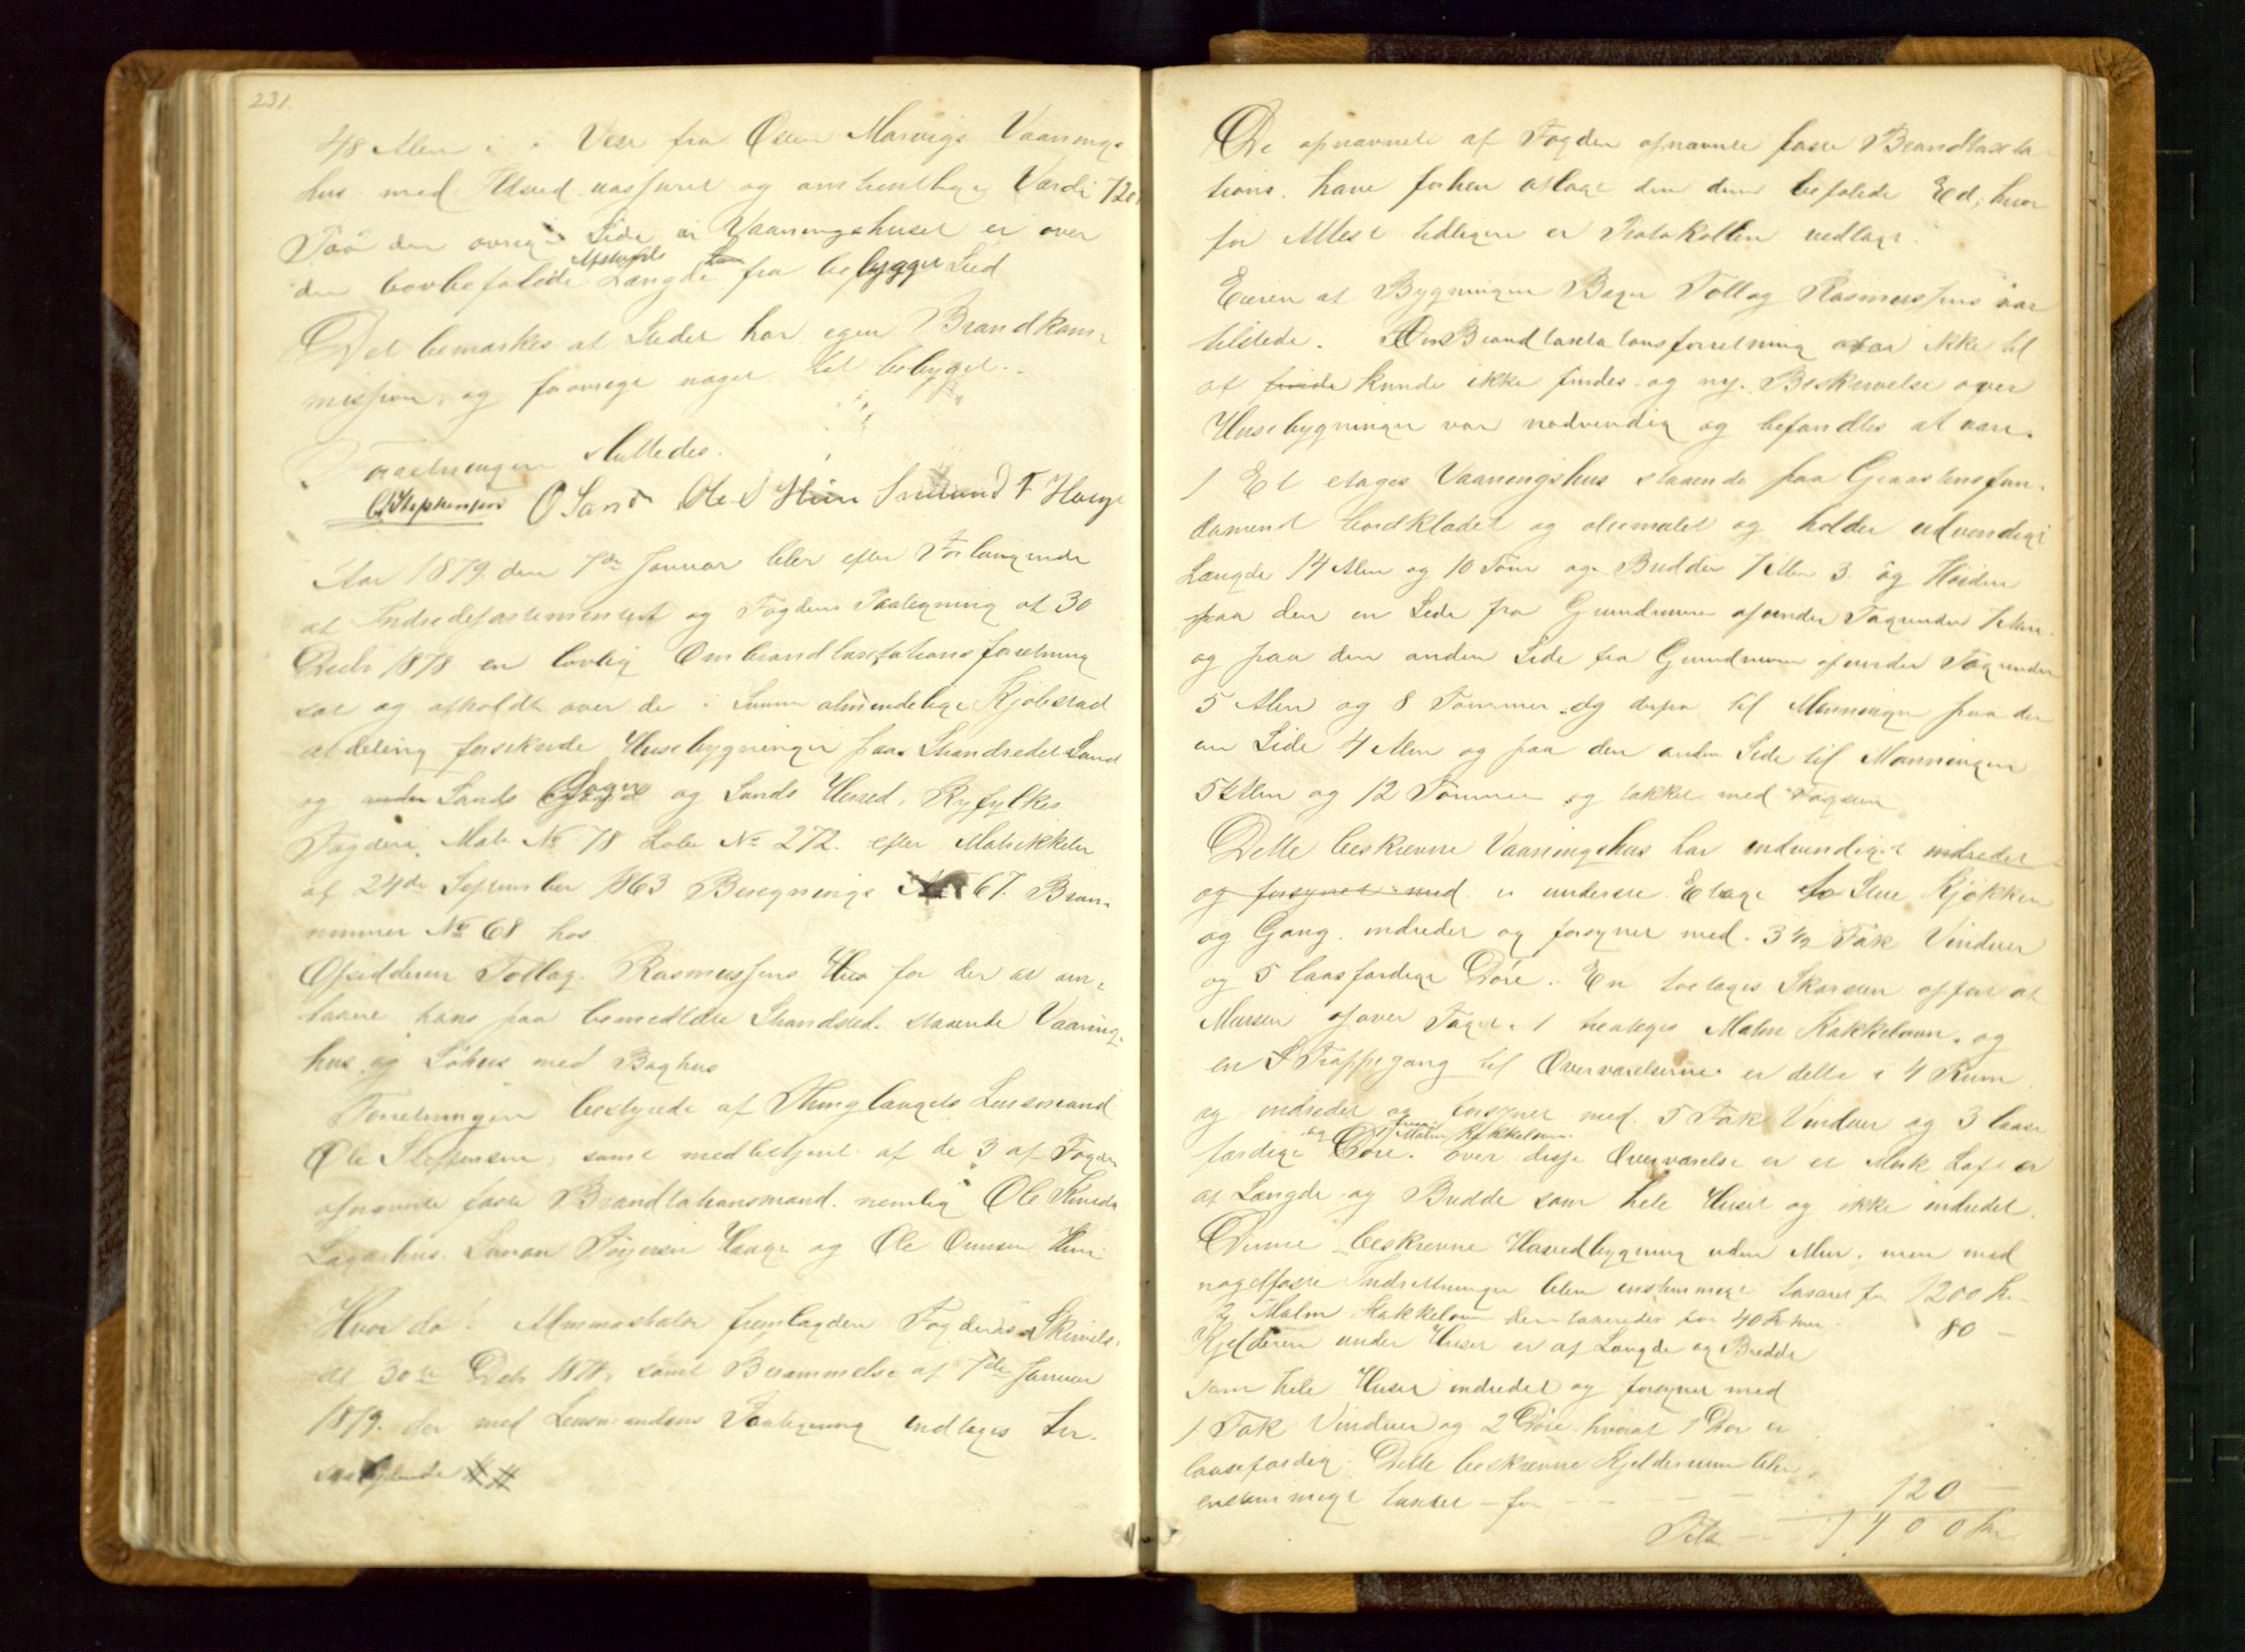 231.
48 Alen i Vest fra Østen Marvigs Vaanings
hus med Ildsted og Værdi 720
Paa den øvrige Side af Vaaningshuset er over
den lovbefalede Afstands Længde fra bebygget Sted
Det bemærkes at Stedet har egen Brandkom-
mission, og forøvrigt noget tæt bebygget.
Forretningen sluttedes.
O Stephensen O Sand Ole O Hiim Smund T Hauge
Aar 1879 den 7de Januar blev efter Forlangende
af Indredepartementet og Fogdens Paalegning af 30
Decbr 1878 en lovlig Ombrandtaxtationsforretning
sat og afholdt over de i almindelige Kjøbstad
afdeling forsikrede Husebygninger paa Strandstedet Sand
og Sands Sogn og Sands Herred, Ryfylkes
Fogderi, Matr No 78 Løbe No 272. efter Matrikkelen
af 24de September 1863 Beregnings No 67. Bran-
nummer No 68 hos
Opsidderen Tollag Rasmussens Hus for der at om-
taxere hans paa bemeldte Strandsted staaende Vaaning-
hus og Søhus med Baghus
Forretningen bestyrede af Thinglaugets Lensmand
Ole Steffensen, samt medbetjent af de 3 af Fogden
opnævnte faste Brandtationsmænd. nemlig Ole Knuds
Lagarhus. Hauge og Ole Hiim
Hvor da! Administrator fremlagden Fogderis Skrivelse
af 30te Decb 1878, samt Berammelse af 7de Januar
1879. der med Lensmandens Paategning indtages her-
#
De opnævnte af Fogden opnævnte faste Brandtaxta-
tions. have forhen aflagt den dem befalede Ed, hvor
for Attest tidligere er Protokollen vedlagt.
Eieren af Bygningen Bager Tollag Rasmussens var
tilstede. Om Brandtaxtationsforretning var ikke til
at finde kunde ikke findes og ny Beskrivelse over
Husebygninger var nødvendig og befandtes at være.
1 Et etages Vaaningshus staaende paa Graastensfun-
dament bordklædet og oliemalet og holder udvendigt
Længde 14 Alen og 10 Tom og Bredden 7 Alen 3 og Høiden
paa den en Side fra Grundmuren op under Tagrenden 7 Alen
og paa den anden Side fra Grundmuren op under Tagrenden
5 Alen og 8 Tommer og derfra til Mønningen paa den
en Side 4 Alen og paa den anden Side til Mønningen
5 Alen og 12 Tommer og tækket med Tagsten
Dette beskrevne Vaaningshus har indvendigt indredet
og forsynet med i underste Etage to Stue Kjøkken
og Gang indredet og forsynet med 3 1/2 Fak Vinduer
og 5 laasfærdige Døre. En toetages Skorsten opført af
Mursten op over Taget. 1 Malm Kakkelovn, og
en Trappegang til Overværelserne er dette i 4 Rum
og indredet og forsynet med 5 Fak Vinduer og 3 laase
færdige Døre. og 1 Malm Kakkelovn over disse Overværelse er et Mørk Loft er
af Længde og Bredde som hele Huset og ikke indredet.
Denne beskrevne Hovedbygning uden Mur, men med
nagelfaste Indretninger blev enstemmigt taxeret for 1200 Kr
2 Malm Kakkelovn blev taxeredes for 40 Kr hver 80 —
Kjelderen under Huset er af Længde og Bredde
som hele Huset indredet og forsynet med
1 Fak Vinduer og 2 Døre hvoraf 1 Dør er
laasefærdig. Dette beskrevne Kjelderrum blev
enstemmigt taxeret — for — 120 —
1400 Kr